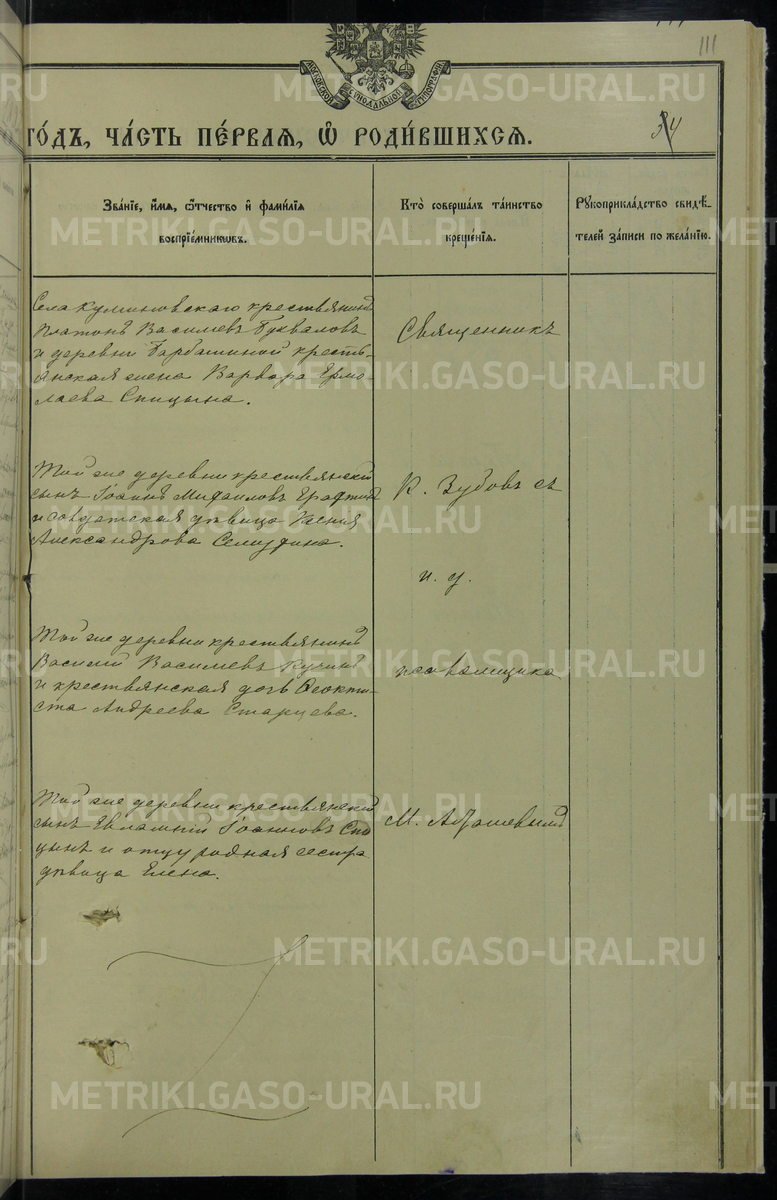 111
МОСКОВСКОЙ СѴНОДАЛЬНОЙ ТИПОГРАФІИ
ГО́ДЪ, ЧА́СТЬ ПЕ́РВАЯ, Ѡ҆ РОДИ́ВШИХСЯ.
34
Зва́нїе, и҆́мѧ, ѻ҆́тчество и҆ фами́лїѧ
воспрїе́мникѡвъ.
Кто̀ совершалъ та́инство
креще́нїѧ.
Рꙋкоприкла́дство свидѣ́-
телей за́писи по жела́нїю.
Села Куминовскаго крестьянинъ
Платонъ Васильевъ Бухваловъ
и деревни Барбашиной кресть-
янская жена Варвара Ермо-
лаева Спицына.
Священникъ
Той же деревни крестьянскій
сынъ Іоаннъ Михаиловъ
и солдатская дѣвица Ксенія
Александрова
К. Зубовъ съ
и. д.
Той же деревни крестьянинъ
Василій Васильевъ Кучинъ
и крестьянская дочь Ѳеокти-
ста Андреева Старцева.
псаломщика
Той же деревни крестьянскій
сынъ Евлампій Іоанновъ Спи-
цынъ и отцу родная сестра
дѣвица Елена.
М.
METRIKI.GASO-URAL.RU